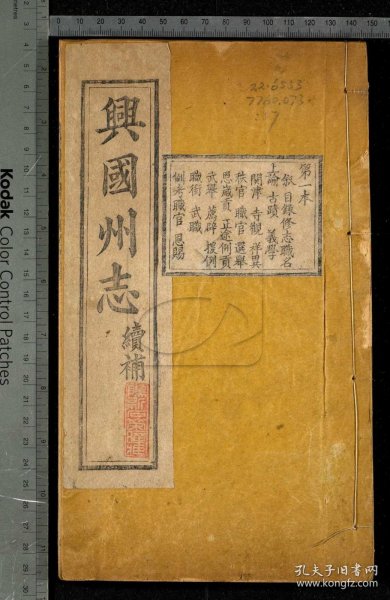 興國州志
續補
第一本
敘 目錄 修志職名
上諭 古蹟 義學
關津 寺觀 祥異
秩官 職官 選舉
恩歲貢 正途例貢
武舉 薦辟 援例
職銜 武職
例考職官 恩賜
22.6553
7760.073
7
Kodak Color Control Patches
孔夫子旧书网
www.kongfz.com